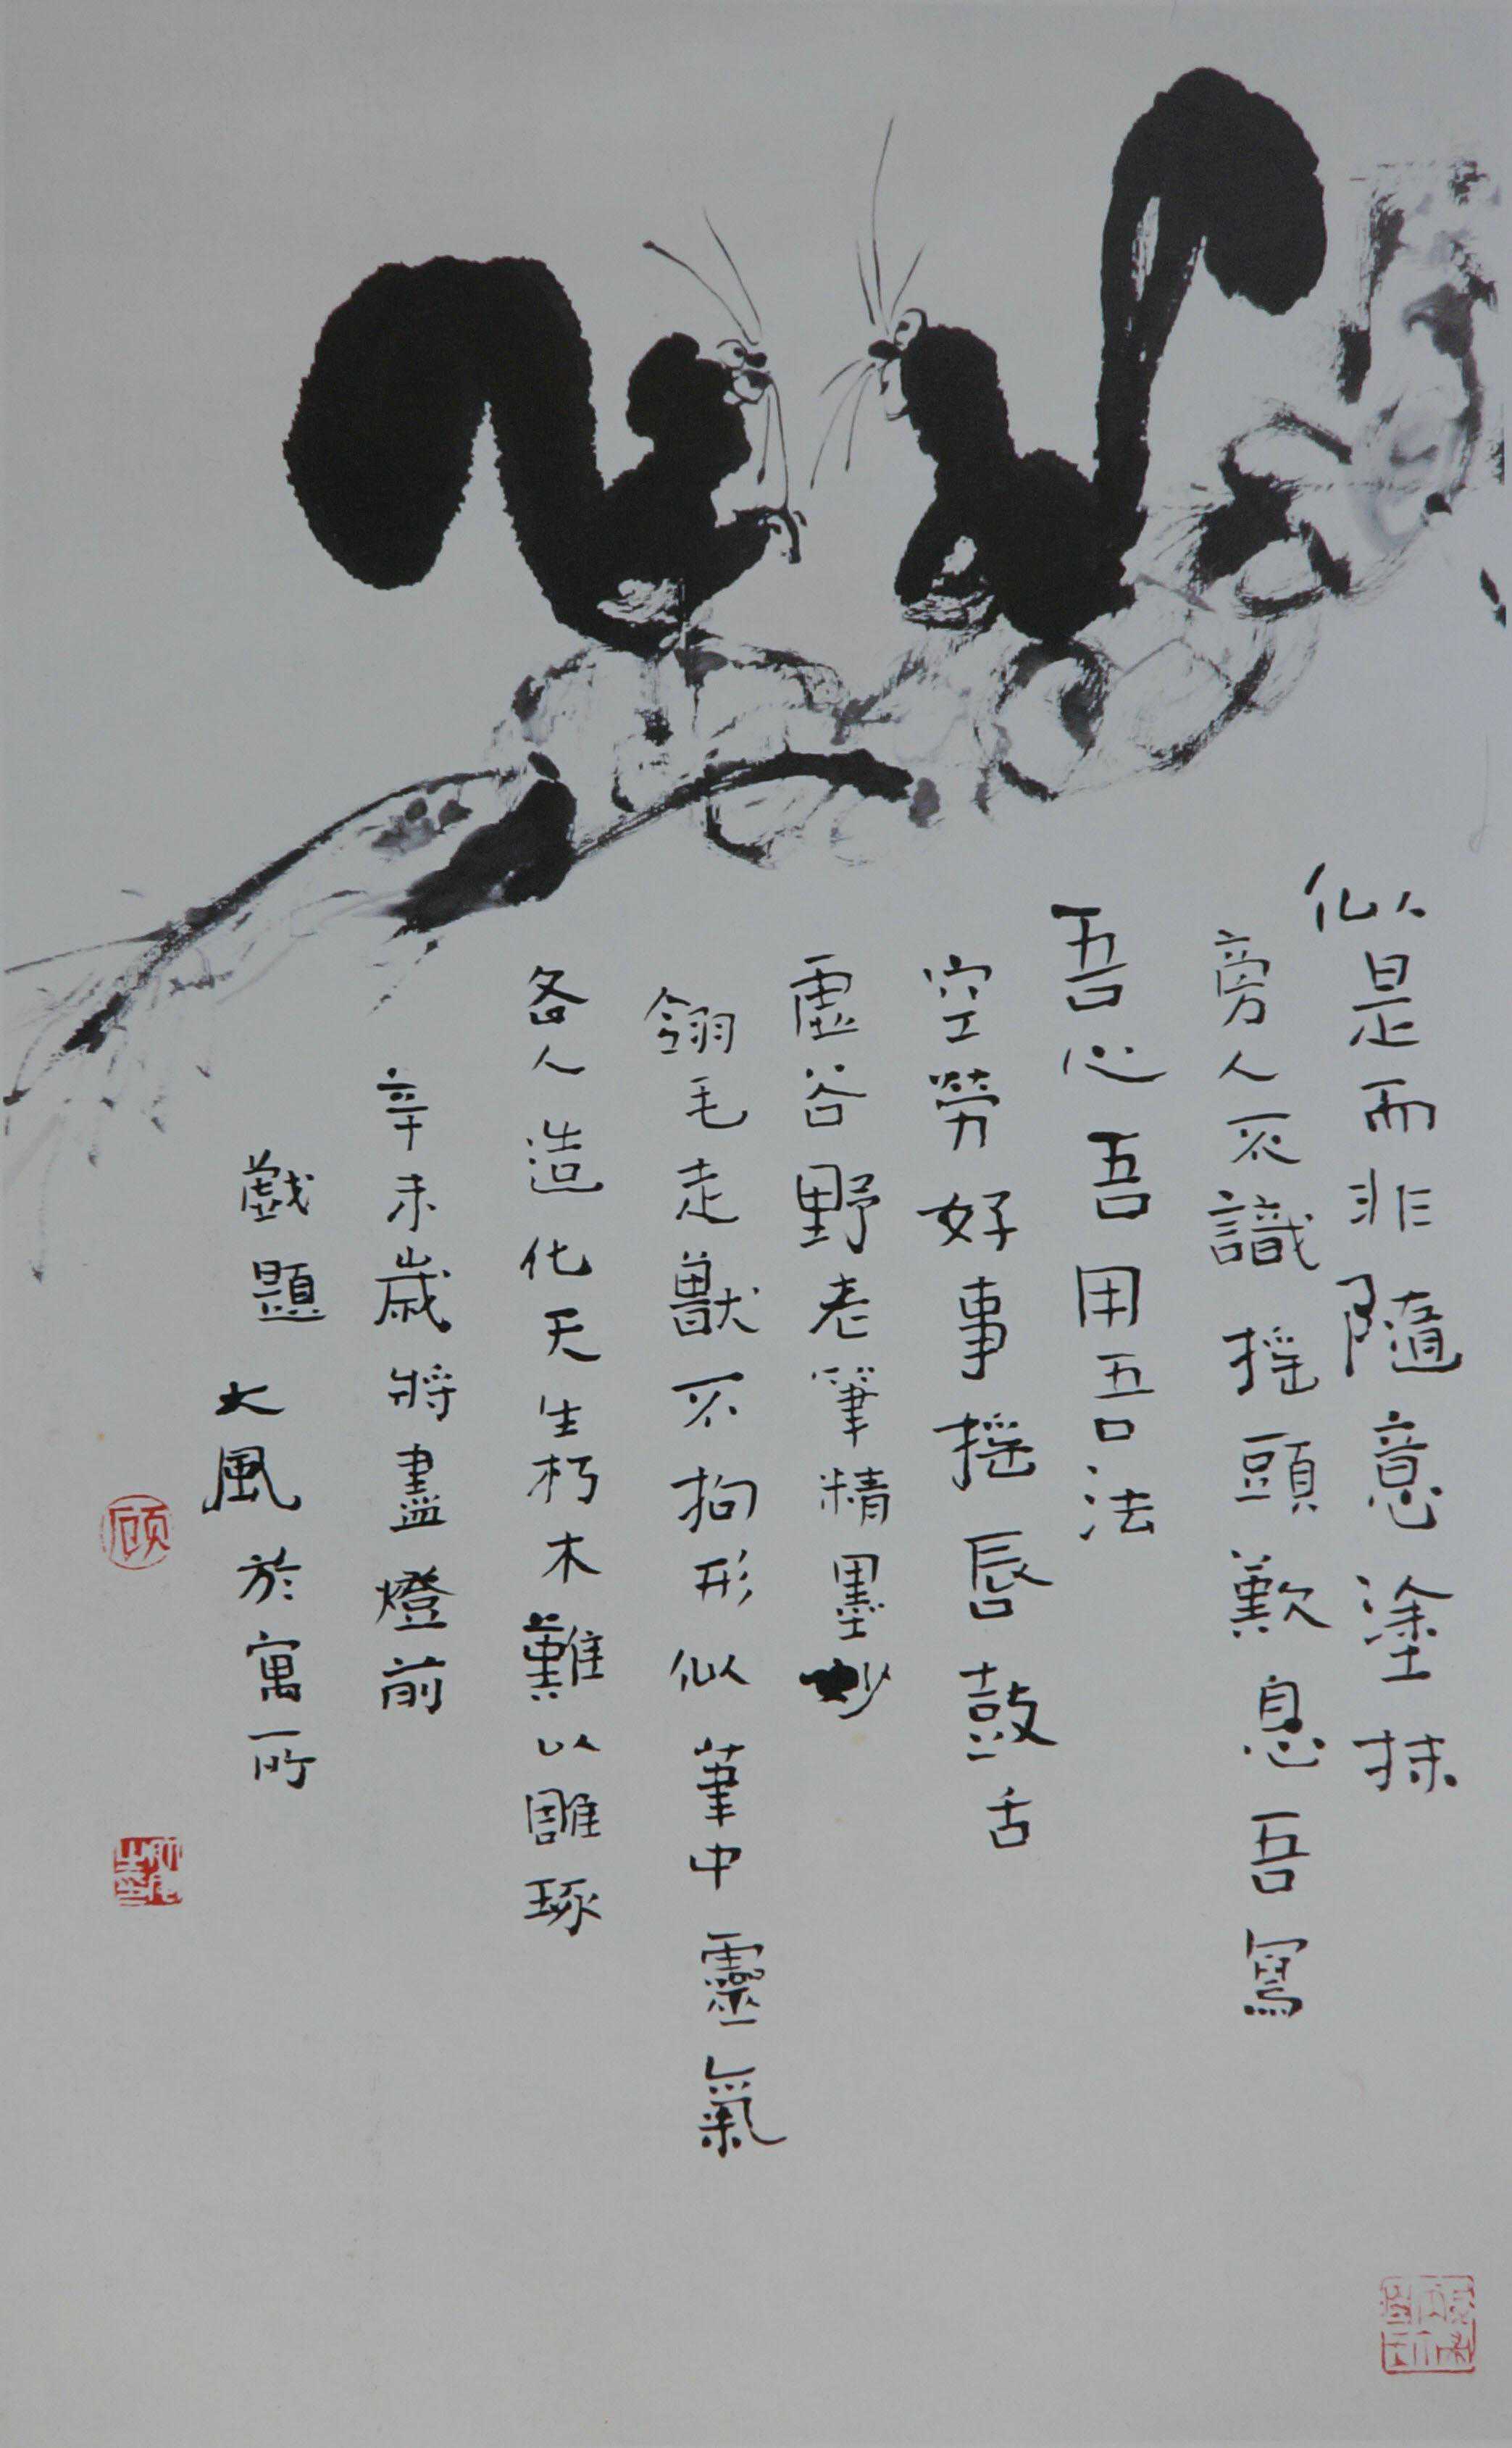 似是而非隨意塗抹
旁人不識摇頭歎息吾寫
吾心吾用吾法
空勞好事摇唇鼓舌
虛谷野老筆精墨妙
翎毛走獸不拘形似筆中靈氣
各人造化天生朽木難以雕琢
辛未歲將盡燈前
戲題 大風於寓所
顾